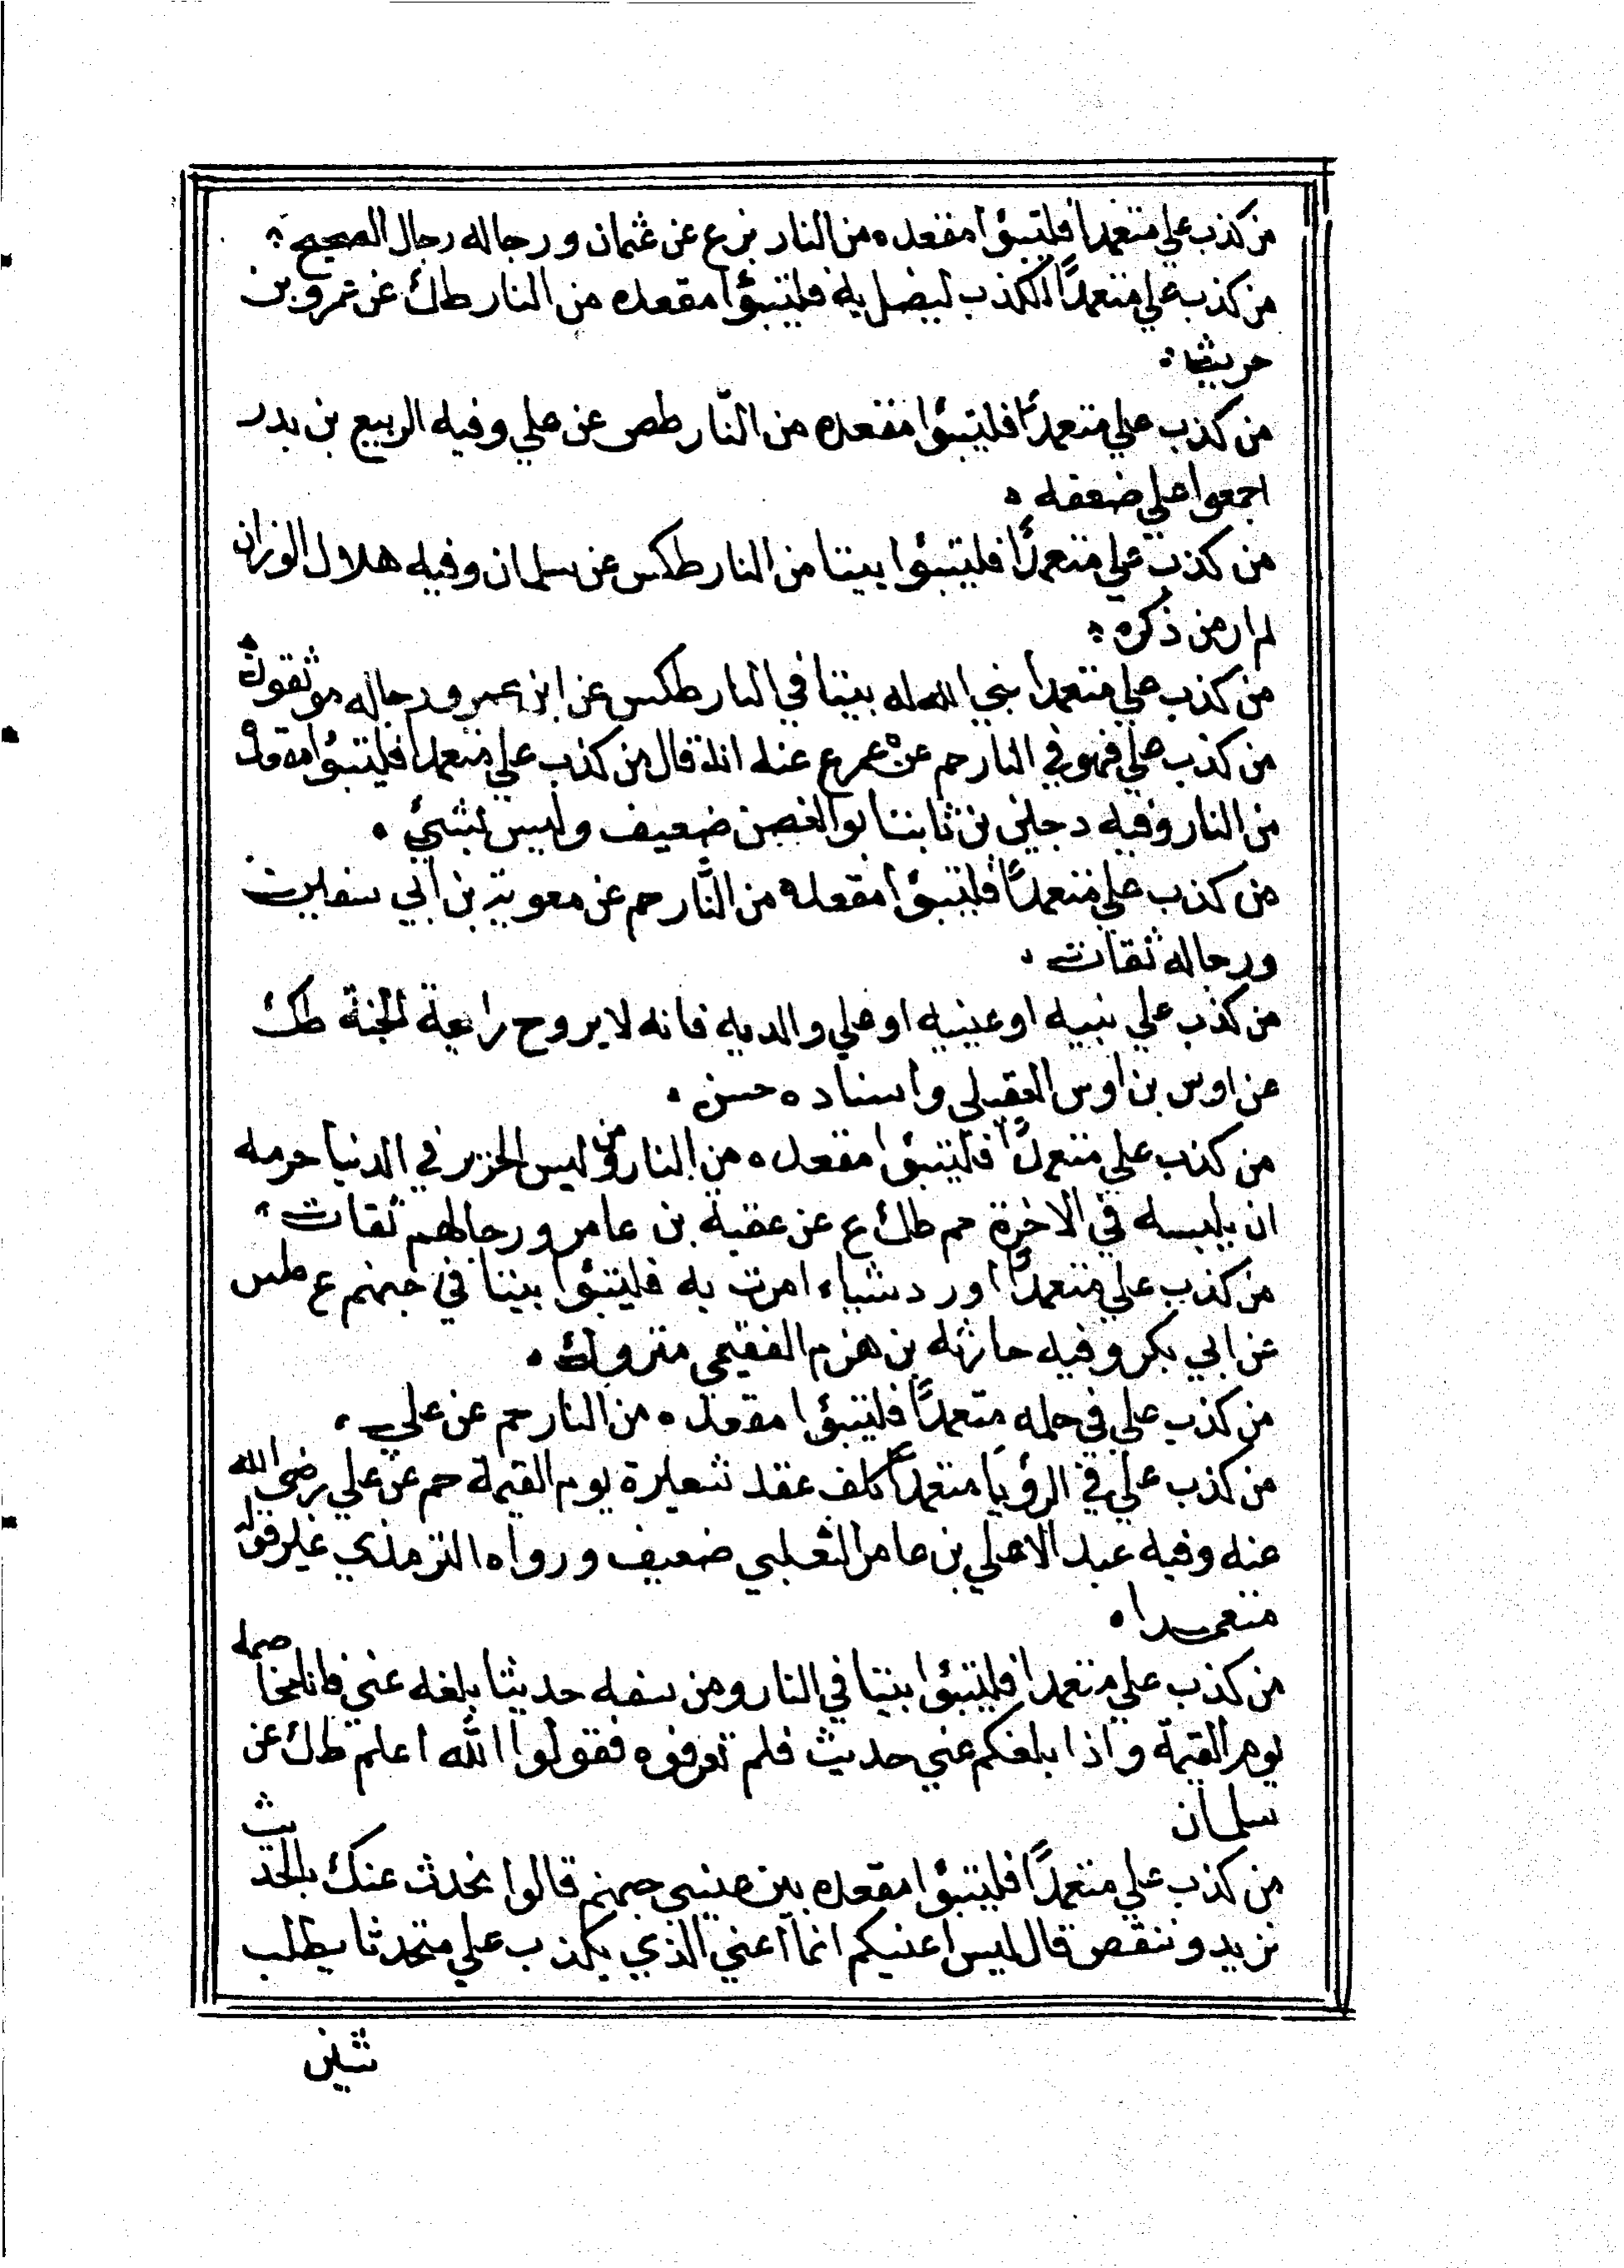 من كذب علي متعمدا فليتبوأ مقعده من النار بز ع عن عثمان ورجاله رجال الصحيح
من كذب علي متعمدًا الكذب ليضل به فليتبوأ مقعده من النار طك عن عمرو بن
حريث
من كذب علي متعمدًا فليتبوأ مقعده من النّار طص عن علي وفيه الربيع بن بدر
اجمعوا علي ضعفه
من كذب علي متعمدًا فليتبوأ بيتا من النار طكس عن سلمان وفيه هلال الوزان
لم ار من ذكره
من كذب علي متعمدا بني الله له بيتا في النار طكس عن ابن عمر ورجاله موثقون
من كذب علي فهو في النار حم عن عمر ع عنه انه قال من كذب علي متعمدا فليتبوأ مقعده
من النار وفيه دجين بن ثابت ابو الغصن ضعيف وليس بشيء
من كذب علي متعمدًا فليتبوأ مقعده من النّار حم عن معوية بن ابي سفين
ورجاله ثقات
من كذب علي نبيه او عينيه او علي والديه فانه لا يروح رايحة الجنة طك
عن اوس بن اوس العقيلي واسناده حسن
من كذب علي متعمدًا فليتبوأ مقعده من النار ومن لبس الحرير في الدنيا حرمه
ان يلبسه في الاخرة حم طك ع عن عقبة بن عامر ورجالهم ثقات
من كذب علي متعمدًا او رد شياء امرت به فليتبوأ بيتا في جهنم ع طس
عن ابي بكر وفيه حارثه بن هزم الفقيمي متروك
من كذب علي في حلمه متعمدًا فليتبوأ مقعده من النار حم عن علي
من كذب علي في الرؤيا متعمدًا كلف عقد شعيرة يوم القيمة حم عن علي رضي الله
عنه وفيه عبد الاعلي بن عامر الثعلبي ضعيف ورواه الترمذي غير قوله
متعمدا
من كذب علي متعمدا فليتبوأ بيتا في النار ومن سفه حديثا بلغه عني فانا مخاصمه
يوم القيمة واذا بلغكم عني حديث فلم تعرفوه فقولوا الله اعلم طك عن
سلمان
من كذب علي متعمدًا فليتبوأ مقعده بين عيني جهنم قالوا نحدث عنك بالحديث
نزيد وننقص قال ليس اعنيكم انما اعني الذي يكذب علي متحدثا يطلب
شين